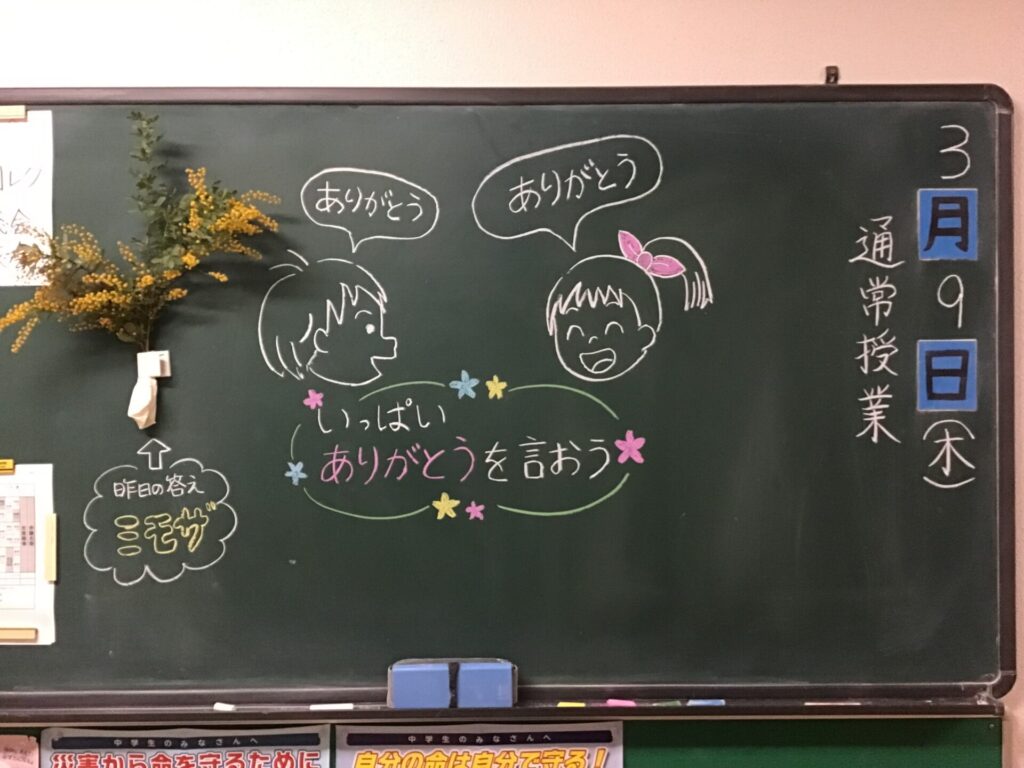 3月9日(木)
通常授業
ありがとう
ありがとう
いっぱい
ありがとうを言おう
昨日の答え
ミモザ
中学生のみなさんへ
災害から命を守るために
中学生のみなさんへ
自分の命は自分で守る!